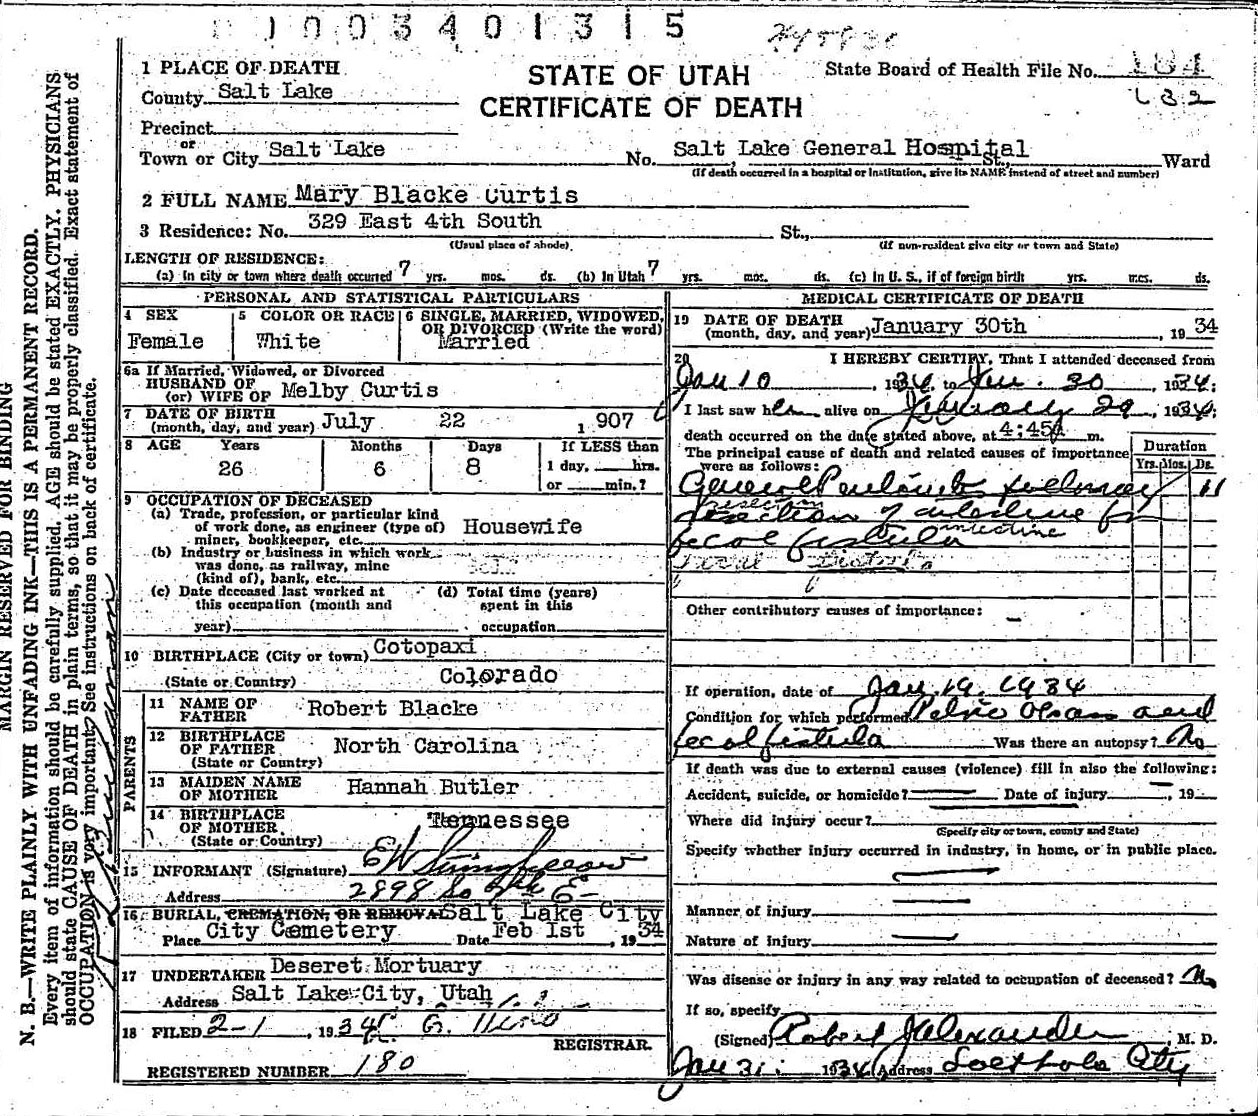 1003401315
1 PLACE OF DEATH
STATE OF UTAH
State Board of Health File No. 184
County Salt Lake
CERTIFICATE OF DEATH
132
Precinct
or
Town or City Salt Lake No. Salt Lake General Hospital St., Ward
(If death occurred in a hospital or institution, give its NAME instead of street and number)
2 FULL NAME Mary Blacke Curtis
3 Residence: No. 329 East 4th South St.,
(Usual place of abode) (If non-resident give city or town and State)
LENGTH OF RESIDENCE:
(a) In city or town where death occurred 7 yrs. mos. ds. (b) In Utah 7 yrs. mos. ds. (c) In U. S., if of foreign birth yrs. mos. ds.
PERSONAL AND STATISTICAL PARTICULARS
4 SEX 5 COLOR OR RACE 6 SINGLE, MARRIED, WIDOWED,
OR DIVORCED (Write the word)
Female White Married
6a If Married, Widowed, or Divorced
HUSBAND OF
(or) WIFE OF Melby Curtis
7 DATE OF BIRTH
(month, day, and year) July 22 1907
8 AGE Years Months Days If LESS than
26 6 8 1 day, hrs.
or min.?
9 OCCUPATION OF DECEASED
(a) Trade, profession, or particular kind
of work done, as engineer (type of) Housewife
miner, bookkeeper, etc.
(b) Industry or business in which work
was done, as railway, mine
(kind of), bank, etc.
(c) Date deceased last worked at (d) Total time (years)
this occupation (month and spent in this
year) occupation
10 BIRTHPLACE (City or town) Cotopaxi
(State or Country) Colorado
PARENTS
11 NAME OF
FATHER Robert Blacke
12 BIRTHPLACE
OF FATHER North Carolina
(State or Country)
13 MAIDEN NAME
OF MOTHER Hannah Butler
14 BIRTHPLACE
OF MOTHER Tennessee
(State or Country)
15 INFORMANT (Signature) E W Stringfellow
Address 2898 So 9th E
16 BURIAL, CREMATION, OR REMOVAL Salt Lake City
Place City Cemetery Date Feb 1st, 1934
17 UNDERTAKER Deseret Mortuary
Address Salt Lake City, Utah
18 FILED 2-1, 1934
REGISTRAR.
REGISTERED NUMBER 180
MEDICAL CERTIFICATE OF DEATH
19 DATE OF DEATH
(month, day, and year) January 30th, 1934
20 I HEREBY CERTIFY, That I attended deceased from
Jan 10, 1934, to Jan. 30, 1934;
I last saw her alive on January 29, 1934;
death occurred on the date stated above, at 4:45 m.
The principal cause of death and related causes of importance
were as follows:
Duration
Yrs. Mos. Ds.
General Peritonitis following 11
resection
resection of intestine for
intestine
fecal fistula
Fecal fistula
Other contributory causes of importance:
If operation, date of Jan. 19. 1934
Condition for which performed Pelvic Abscess and
fecal fistula Was there an autopsy? No
If death was due to external causes (violence) fill in also the following:
Accident, suicide, or homicide? Date of injury, 19
Where did injury occur?
(Specify city or town, county and State)
Specify whether injury occurred in industry, in home, or in public place.
Manner of injury
Nature of injury
Was disease or injury in any way related to occupation of deceased? No
If so, specify
(Signed) Robert J Alexander, M. D.
Jan 31. 1934 Address Salt Lake City
MARGIN RESERVED FOR BINDING
N. B.—WRITE PLAINLY WITH UNFADING INK—THIS IS A PERMANENT RECORD.
Every item of information should be carefully supplied. AGE should be stated EXACTLY. PHYSICIANS
should state CAUSE OF DEATH in plain terms, so that it may be properly classified. Exact statement of
OCCUPATION is very important. See instructions on back of certificate.